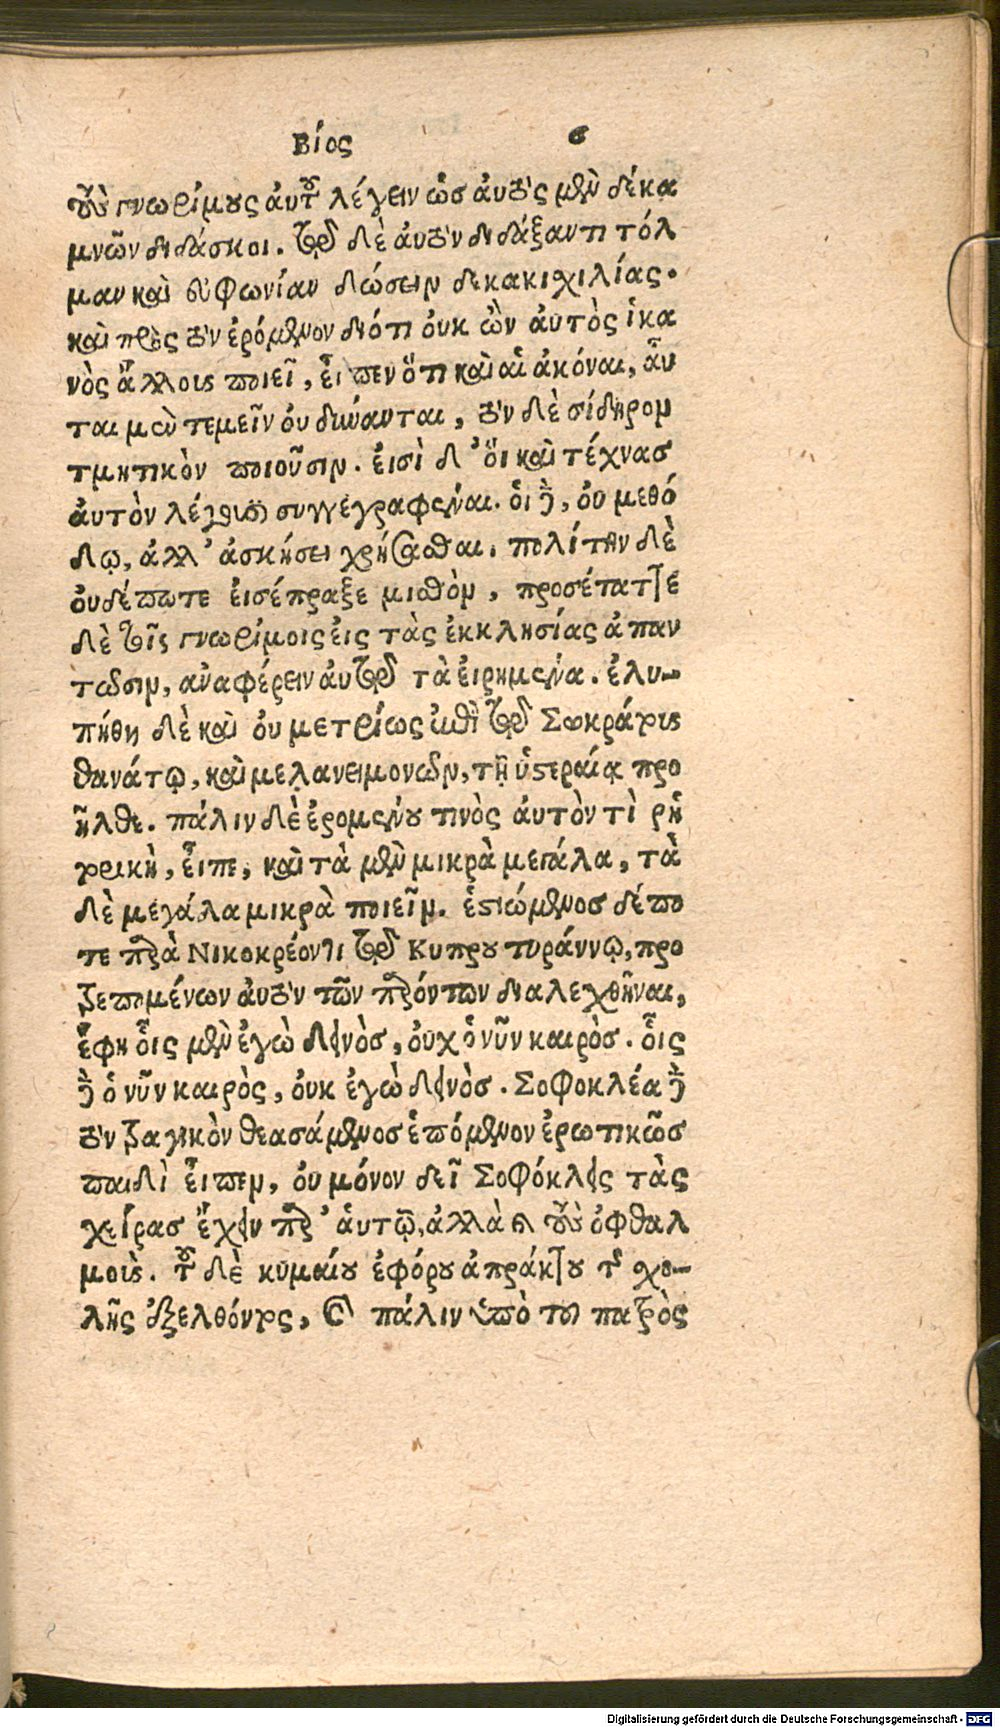 Βίος ϛ
τοὺς γνωρίμους αὐτοῦ λέγειν ὡσ αὐτὸς μὲν δέκα
μνῶν διδάσκοι. τῷ δὲ αὐτὸν διδάξαντι τόλ
μαν καὶ εὐφωνίαν δώσειν δεκακιχιλίας.
καὶ πρὸς τὸν ἐρόμενον διότι ὀυκ ὢν ἀυτὸς ἱκα
νὸς ἄλλους ποιεῖ, ἐῖπεν ὅτι καὶ αἱ ἀκόναι, ἀῦ
ται μὲν τεμεῖν ὀυ δύνανται, τὸν δὲ σίδηρον
τμητικὸν ποιοῦσιν. ἐισὶ δ' ὅι καὶ τέχνασ
ἀυτὸν λέγουσι συγγεγραφέναι. ὁι δὲ, ὀυ μεθό
δῳ, ἀλλ' ἀσκήσει χρήσασθαι. πολίτην δὲ
ὀυδέπωτε ἐισέπραξε μισθὸν, προσέταττε
δὲ τοῖς γνωρίμοις ἐις τὰς ἐκκλησίας ἀπαν
τῶσιν, ἀναφέρειν ἀυτῷ τὰ ἐιρημένα. ἐλυ-
πήθη δὲ καὶ ὀυ μετρίως ἐπὶ τῷ Σωκράτους
θανάτῳ, καὶ μελανειμονῶν, τῇ ὑστεραίᾳ προ
ῆλθε. πάλιν δὲ ἐρομένου τινὸς ἀυτὸν τὶ ῥη
τορικὴ, ἐῖπε, καὶ τὰ μὲν μικρὰ μεγάλα, τὰ
δὲ μεγάλα μικρὰ ποιεῖν. ἑστιώμενοσ δέ πο
τε παρὰ Νικοκρέοντι τῷ Κυπρου τυράννῳ, προ
τρεπομένων ἀυτὸν τῶν παρόντων διαλεχθῆναι,
ἔφη ὁῖς μὲν ἐγὼ δεινὸσ, ὀυχ ὁ νῦν καιρὸσ. ὁῖς
δὲ ὁ νῦν καιρὸς, ὀυκ ἐγὼ δεινὸσ. Σοφοκλέα δὲ
τὸν τραγικὸν θεασάμενοσ ἑπόμενον ἐρωτικῶσ
παιδὶ ἐῖπεν, ὀυ μόνον δεῖ Σοφόκλεις τὰς
χεῖρασ ἔχειν παρ' ἁυτῷ, ἀλλὰ καὶ τοὺς ὀφθαλ
μοὺς. τοῦ δὲ κυμαίου ἐφόρου ἀπράκτου τῆς σχο-
λῆς ἐξελθόντος, καὶ πάλιν ὑπὸ τοῦ πατρὸς
Digitalisierung gefördert durch die Deutsche Forschungsgemeinschaft - DFG